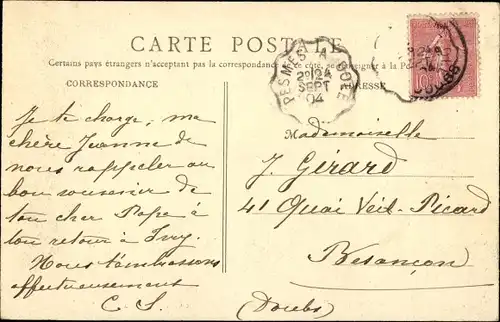 CARTE POSTALE
Certains pays étrangers n'acceptent pas la correspondance de ce côté, se renseigner à la Poste
CORRESPONDANCE
ADRESSE
PESMES A DOLE
2E/24
SEPT
04
DOUBS
10
Je te charge, ma
chère Jeanne de
nous rappeler au
bon souvenir de
ton cher Papa à
ton retour à Ivry.
Nous t'embrassons
affectueusement
C. S.
Mademoiselle
J. Gérard
41 Quai Veil-Picard
Besançon
(Doubs)